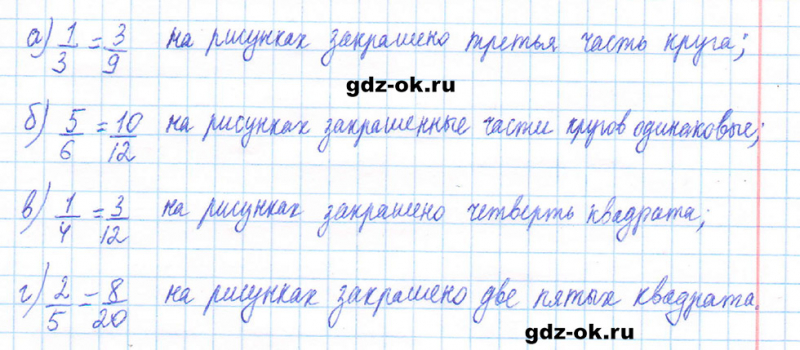 а) 1/3 = 3/9 на рисунках закрашено третья часть круга;
gdz-ok.ru
б) 5/6 = 10/12 на рисунках закрашенные части кругов одинаковые;
в) 1/4 = 3/12 на рисунках закрашено четверть квадрата;
г) 2/5 = 8/20 на рисунках закрашено две пятых квадрата.
gdz-ok.ru